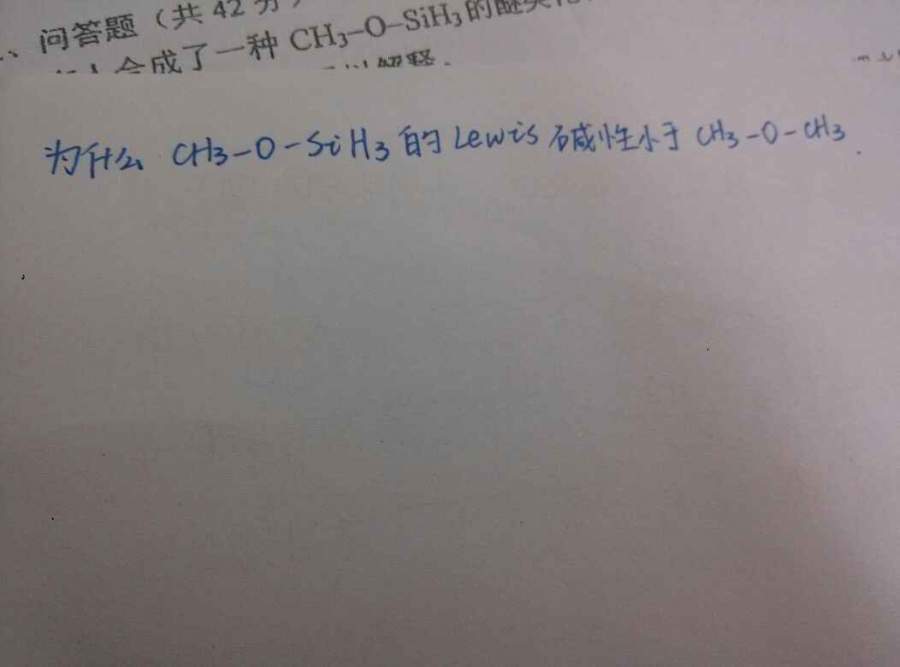 、问答题（共 42 分）
合成了一种 CH₃–O–SiH₃ 的醚类
解释.
为什么 CH3-O-SiH3 的 Lewis 碱性小于 CH3-O-CH3.